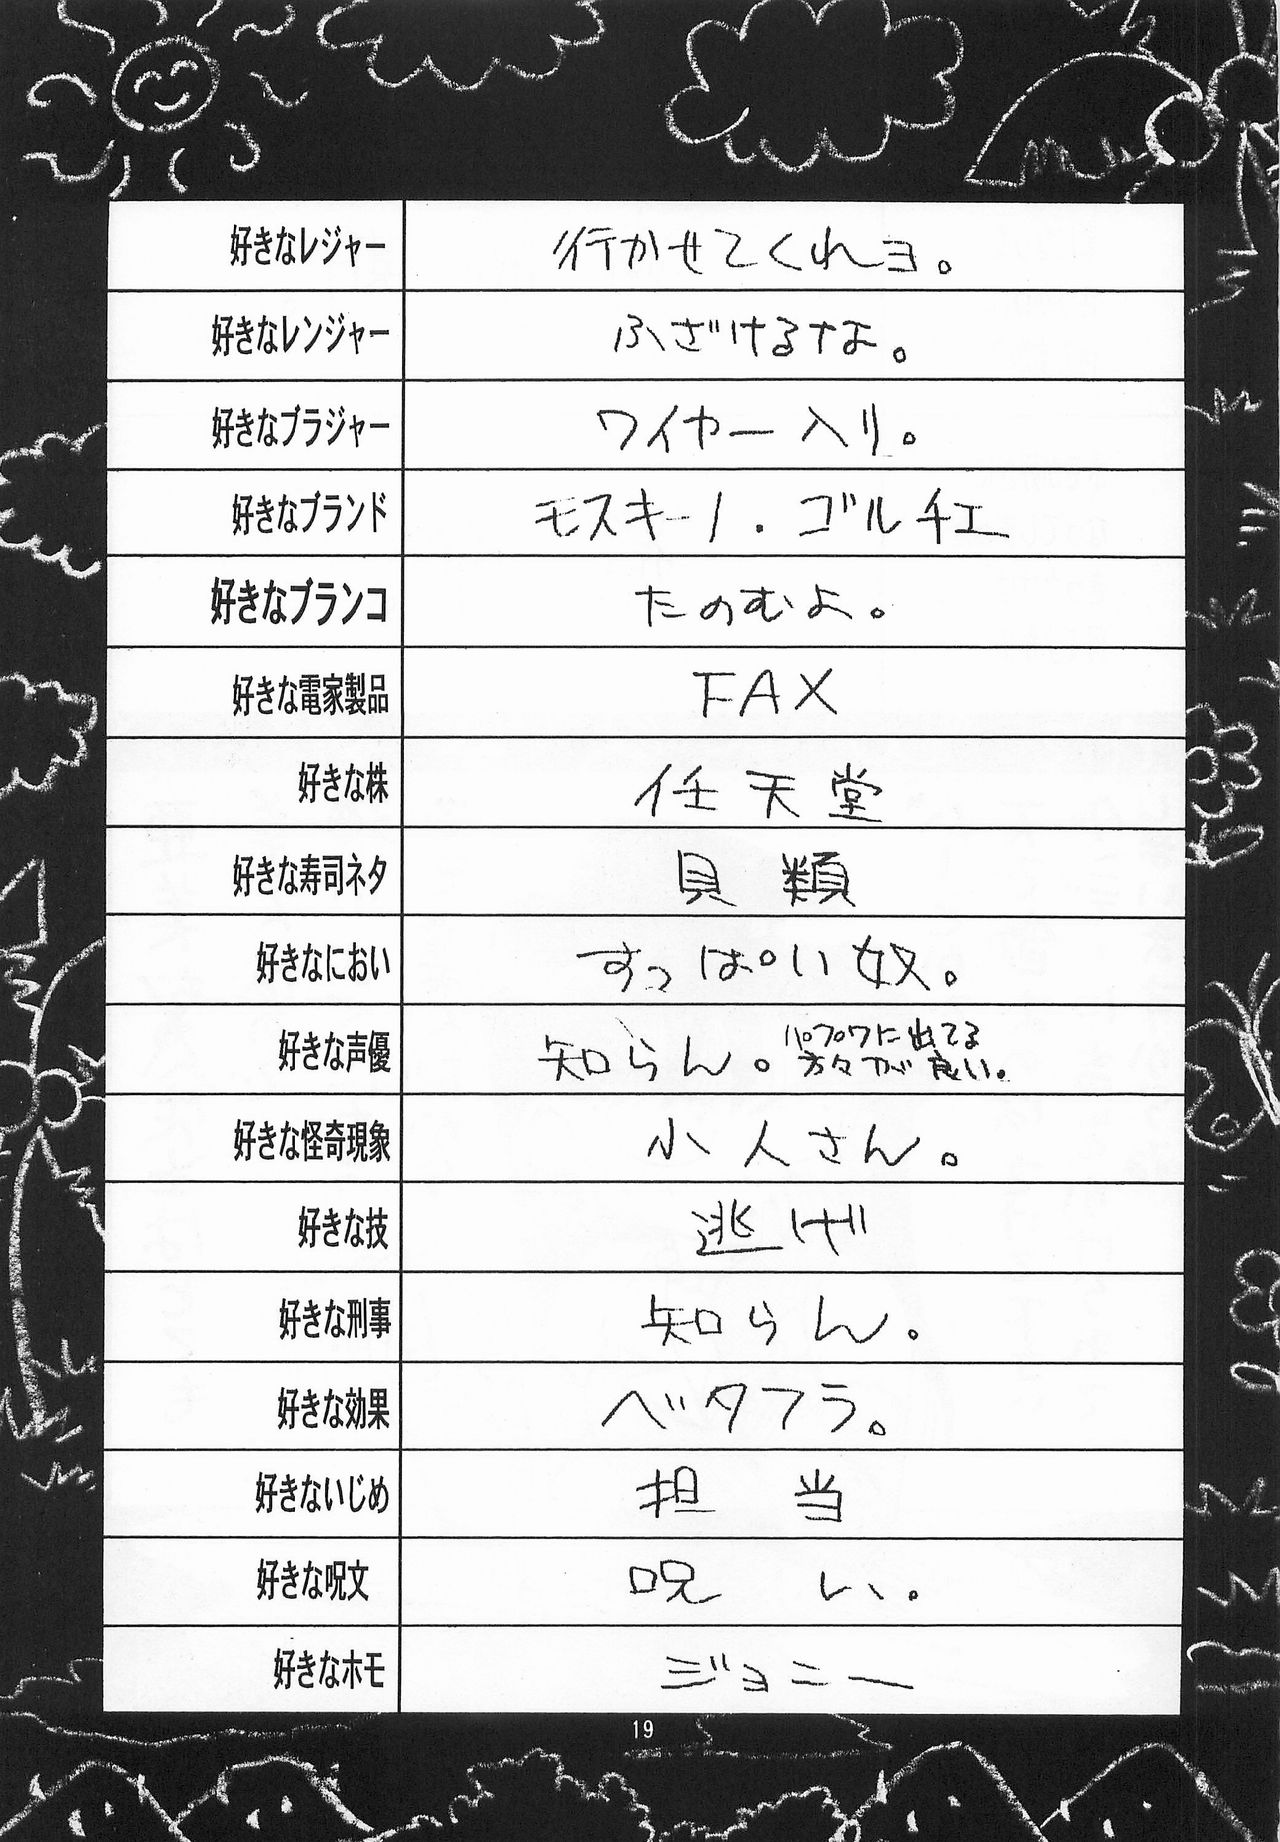 好きなレジャー 行かせてくれヨ。
好きなレンジャー ふざけるなよ。
好きなブラジャー ワイヤー入り。
好きなブランド モスキーノ.ゴルチエ
好きなブランコ たのむよ。
好きな電家製品 FAX
好きな株 任天堂
好きな寿司ネタ 貝類
好きなにおい すっぱい奴。
好きな声優 知らん。パプワに出てる
方々が良い。
好きな怪奇現象 小人さん。
好きな技 逃げ
好きな刑事 知らん。
好きな効果 ベタフラ。
好きないじめ 担当
好きな呪文 呪い。
好きなホモ ジョニー
19